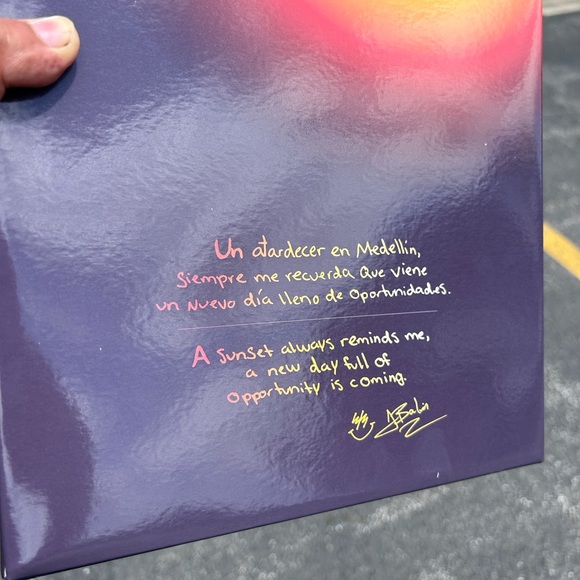 Un atardecer en Medellín,
Siempre me recuerda Que viene
un Nuevo día lleno de Oportunidades.
A Sunset always reminds me,
a new day full of
Opportunity is coming.
JBalvin